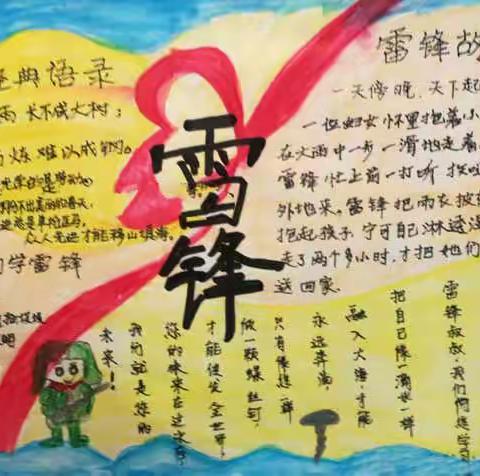 典语录
雨 长不成大树;
炼 难以成钢。
众人先进才能移山填海。
学雷锋
雷锋
雷锋故
一天傍晚,天下起
一位妇女怀里抱着小
在大雨中一步一滑地走着
雷锋忙上前一打听
外地来,雷锋把雨衣披
抱起孩子,宁可自己淋透
走了两个多小时,才把她们
送回家。
雷锋叔叔,我们向您学
把自己像一滴水一样
融入大海,才能
永远奔涌,
只有像您一样
做一颗螺丝钉,
才能绽放全世界,
您的未来在这
我们就是您的
未来!